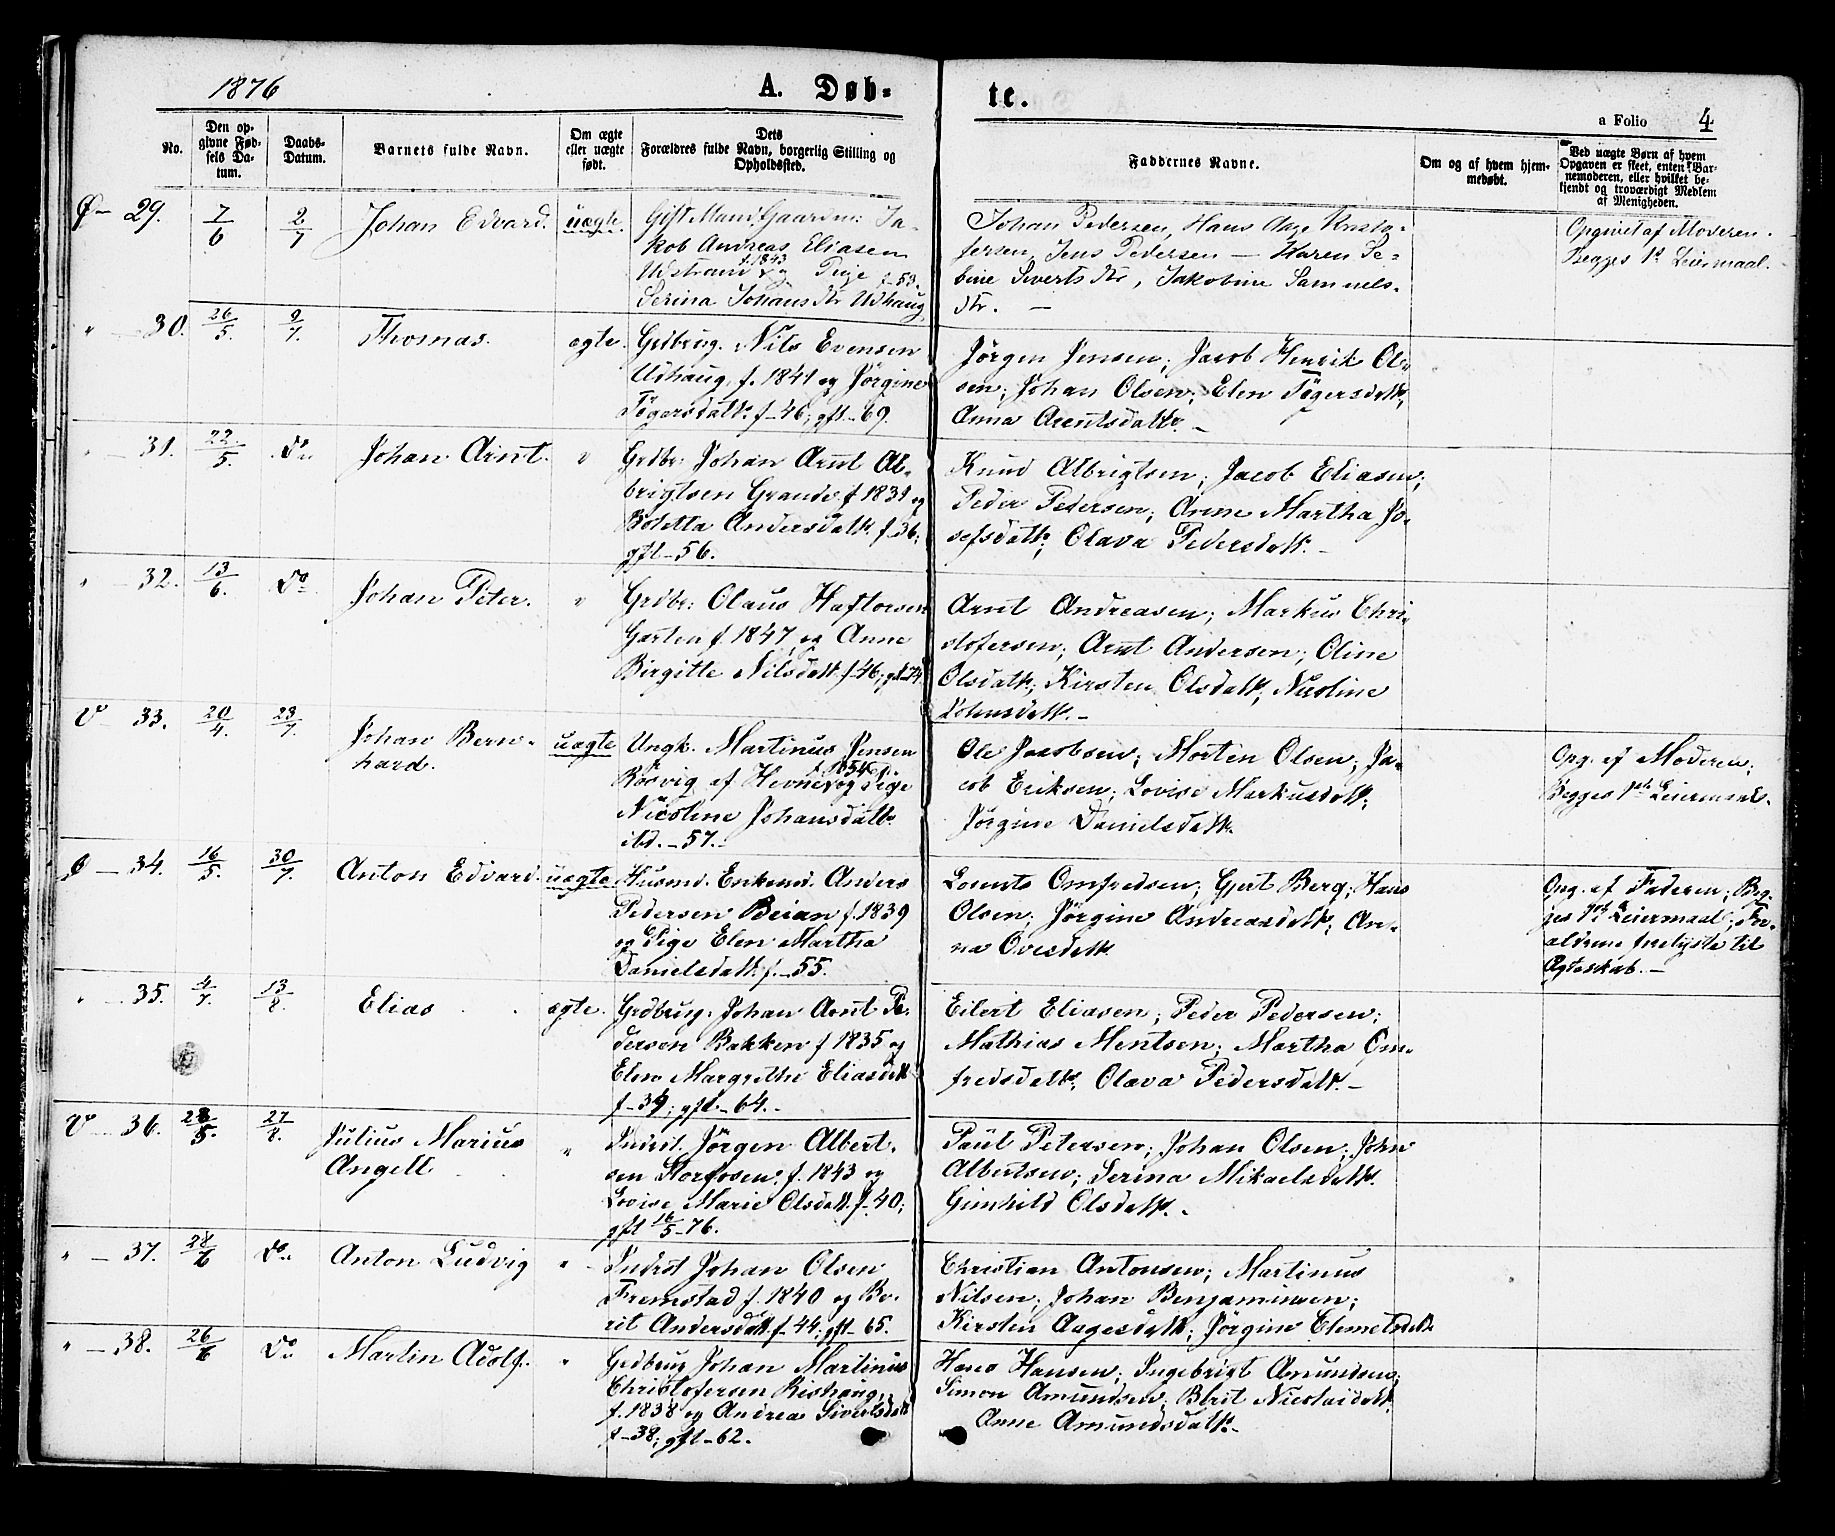 1876
A. Døb-
te.
a Folio 4
No.
Den op-
givne Fød-
sels Da-
tum.
Daabs-
Datum.
Barnets fulde Navn.
Om ægte
eller uægte
født.
Dets
Forældres fulde Navn, borgerlig Stilling og
Opholdssted.
Faddernes Navne.
Om og af hvem hjem-
medøbt.
Ved uægte Børn af hvem
Opgaven er skeet, enten Bar-
nemoderen, eller hvilket be-
kjendt og troværdigt Medlem
af Menigheden.
Ø - 29. 7/6 2/7 Johan Edvard. uægte.
Gift Mand Gaardm: Ja-
kob Andreas Eliasen
Udstrand f. 1843 og Pige f-53.
Serina Johansdtr Udhaug.
Johan Pedersen, Hans Aage Kristo-
fersen, Jens Pedersen — Karen Se-
rine Sivertsdtr, Jakobine Samuels-
dtr. —
Opgivet af Moderen.
Begges 1ste Leiermaal.
" - 30. 26/5. 9/7. Thomas. ægte.
Grdbrug. Nils Evensen
Udhaug, f. 1841 og Jørgine
Tøgersdatt. f-46; gft-69.
Jørgen Jensen; Jacob Henrik Ol-
sen; Johan Olsen; Elen Tøgersdatt,
Anna Arentsdattr. -
" - 31. 22/5. Do. Johan Arnt. "
Grdbr: Johan Arnt Al-
brigtsen Grande f. 1831 og
Boletta Andersdatt. f-36;
gft-56.
Knud Albrigtsen; Jacob Eliasen;
Peder Pedersen; Anne Martha Jo-
sefsdatt; Olava Pedersdatt. -
" - 32. 13/6. Do. Johan Peter. "
Grdbr: Olaus Haftorsen
Garten f. 1847, og Anne
Birgitte Nilsdatt. f-46; gft-74.
Arnt Andreasen; Markus Chri-
stofersen; Arnt Andersen; Oline
Olsdatt; Kirsten Olsdatt; Nicoline
Johnsdatt. -
V - 33. 20/4. 23/7. Johan Bern-
hard. uægte
Ungk. Martinus Jensen
Røsvig af Hevne f. 1854 og Pige
Nicoline Johansdatt.
ibd. - 57.
Ole Jacobsen; Morten Olsen; Ja-
cob Eriksen; Lovise Markusdatt;
Jørgine Danielsdatt.
Opg. af Moderen;
Begges 1ste Leiermaal.
Ø - 34. 16/5. 30/7. Anton Edvard. uægte.
Husmd. Enkemd. Anders
Pedersen Beian f. 1839
og Pige Elen Martha
Danielsdatt. f.-55.
Lorents Omfredsen; Gjert Berg; Hans
Olsen; Jørgine Andreasdatt; An-
na Ovesdatt.
Opg. af Faderen; Beg-
ges 1ste Leiermaal; For-
ældrene trolyste til
Ægteskab. -
" - 35. 4/7. 13/8. Elias ægte.
Grdbrug. Johan Arnt Pe-
dersen Bakken f 1835 og
Elen Margrethe Eliasdatt
f-39; gft.-64.-
Eilert Eliasen; Peder Pedersen;
Mathias Mentsen; Martha Om-
fredsdatt; Olava Pedersdatt.-
V - 36. 28/5. 27/8. Julius Marius
Angell "
Indrst. Jørgen Albert-
sen Storfosen f. 1843 og
Lovise Marie Olsdatt. f-40;
gft 16/5-76.
Paul Petersen; Johan Olsen; John
Albertsen; Serina Mikaelsdatt.
Gunhild Olsdatt. -
" - 37. 28/6 Do. Anton Ludvig "
Indrst Johan Olsen
Fremstad f. 1840 og Be-
rit Andersdatt. f-44; gft-65.
Christian Antonsen; Martinus
Nilsen; Johan Benjaminsen;
Kirsten Aagesdatt; Jørgine Elemetsdatt
" - 38. 26/6 Do. Martin Adolf. "
Grdbrug Johan Martinus
Christofersen Rishaug
f. 1838 og Andrea Sivertsdatt
f-38; gft-62.
Hans Hansen; Ingebrigt Amundsen;
Simon Amundsen; Berit Nicolaidatt;
Anne Amundsdatt.-